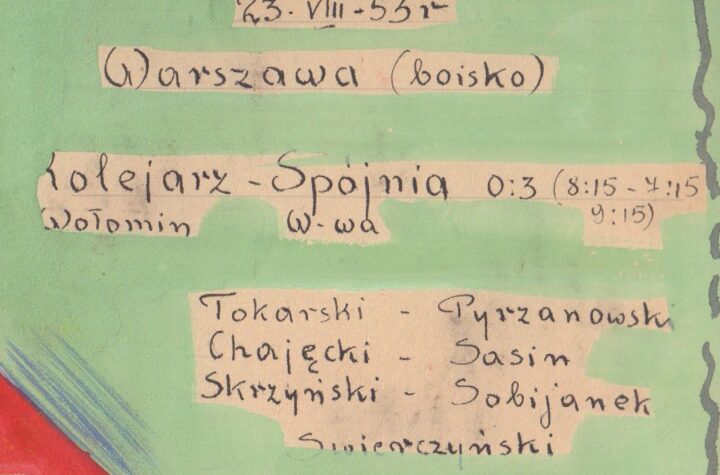 23. VIII - 55 r
Warszawa (boisko)
Kolejarz - Spójnia 0:3 (8:15 - 7:15
Wołomin W-wa 9:15)
Tokarski - Pyrzanowski
Chajęcki - Sasin
Skrzyński - Sobijanek
Świerczyński